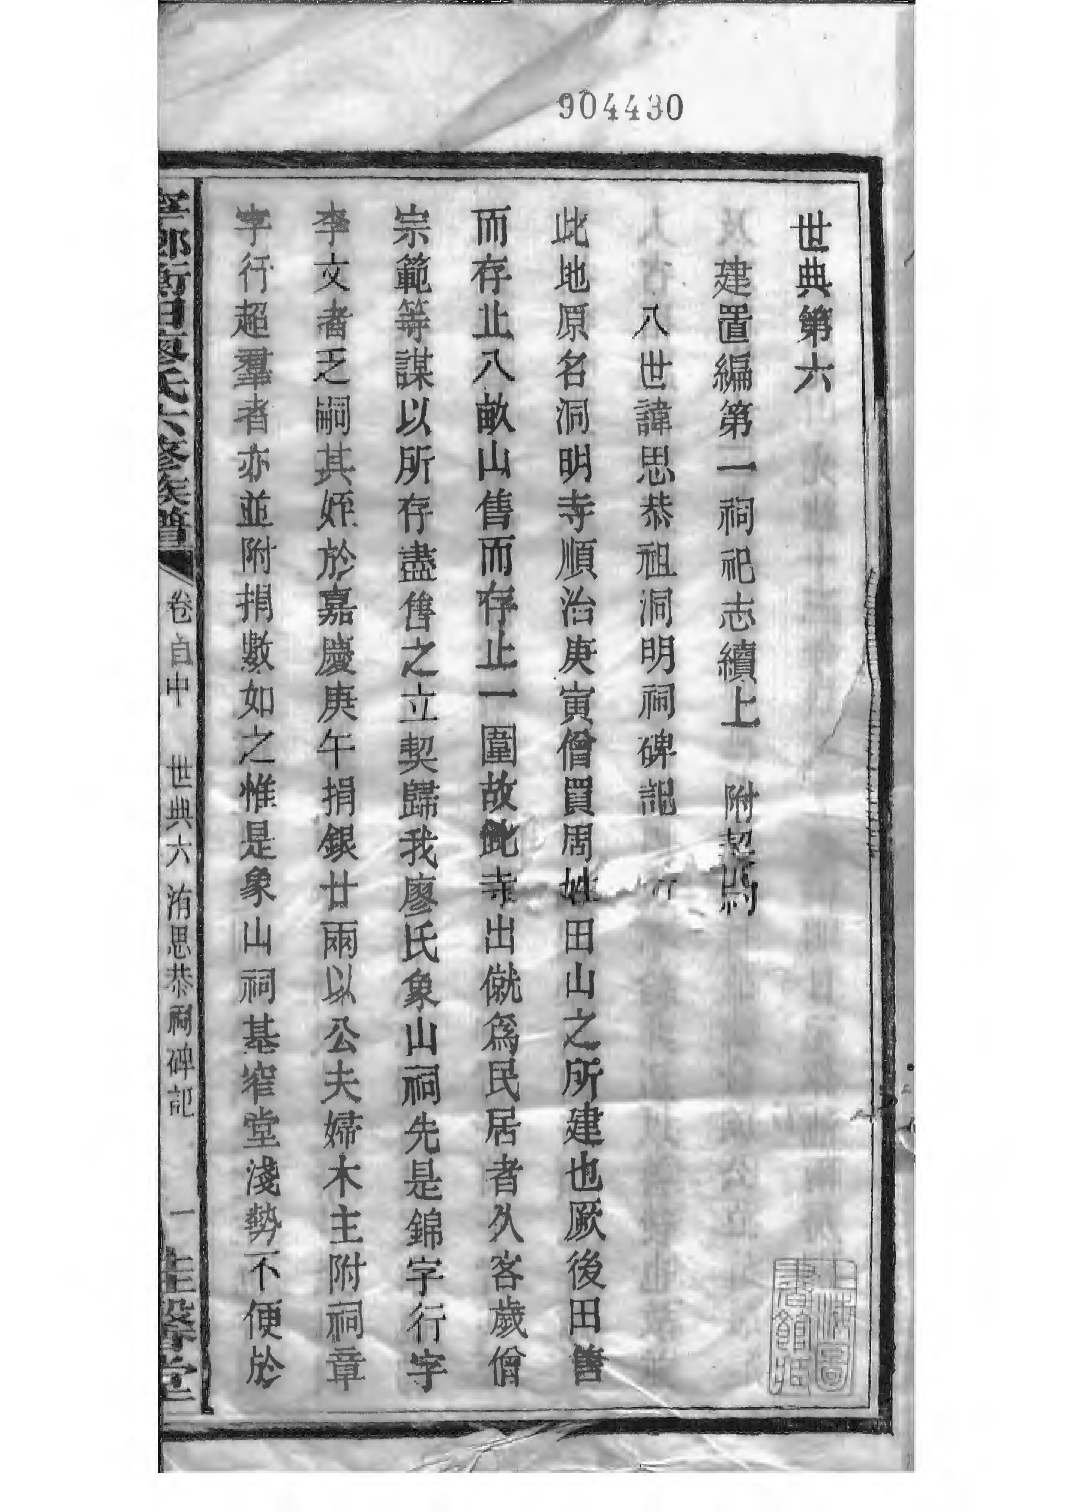 904430
世典第六
建置編第二祠祀志續上 附契約
八世諱思恭祖洞明祠碑記
此地原名洞明寺順治庚寅僧買周姓田山之所建也厥後田售
而存止八畝山售而存止一圍故此寺出僦爲民居者久客歲僧
宗範等謀以所存盡售之立契歸我廖氏象山祠先是錦字行字
李文者乏嗣其姪於嘉慶庚午捐銀廿兩以公夫婦木主附祠章
字行超羣者亦並附捐數如之惟是象山祠基窄堂淺勢不便於
寧鄉衡田廖氏六修族譜
卷首中 世典六 洧思恭祠碑記 一
上海圖書館藏